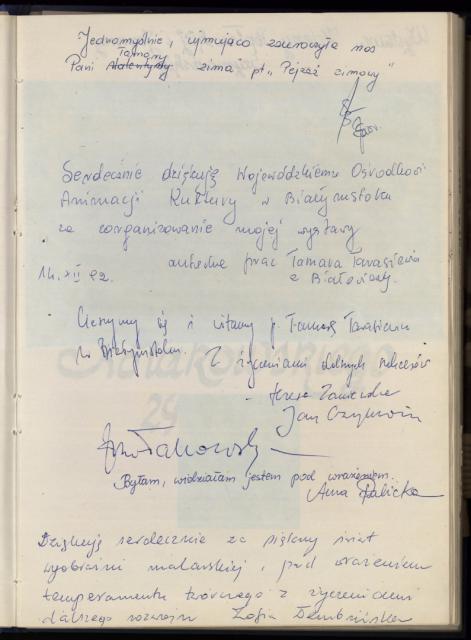 Jednomyślnie, ujmująco zauroczyła nas
Tamary
Pani Walentyny zima pt „Pejzaż zimowy”
Serdecznie dziękuję Wojewódzkiemu Ośrodkowi
Animacji Kultury w Białymstoku
za zorganizowanie mojej wystawy
autorka prac Tamara Tarasiewicz
14.XII 92. z Białowieży.
Cieszymy się i witamy p. Tamarę Tarasiewicz
w Białymstoku. Z życzeniami dalszych sukcesów
Jan
Byłam, widziałam jestem pod wrażeniem.
Anna
Dziękuję serdecznie za piękny świat
wyobraźni malarskiej, pod wrażeniem
temperamentu twórczego z życzeniami
dalszego rozwoju Zofia Dembińska